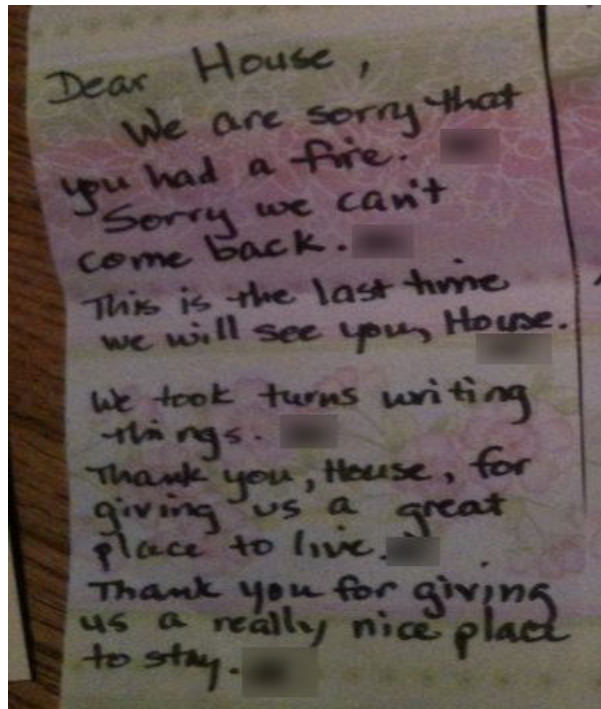 Dear House,
We are sorry that
you had a fire.
Sorry we can't
come back.
This is the last time
we will see you, House.
We took turns writing
things.
Thank you, House, for
giving us a great
place to live.
Thank you for giving
us a really nice place
to stay.